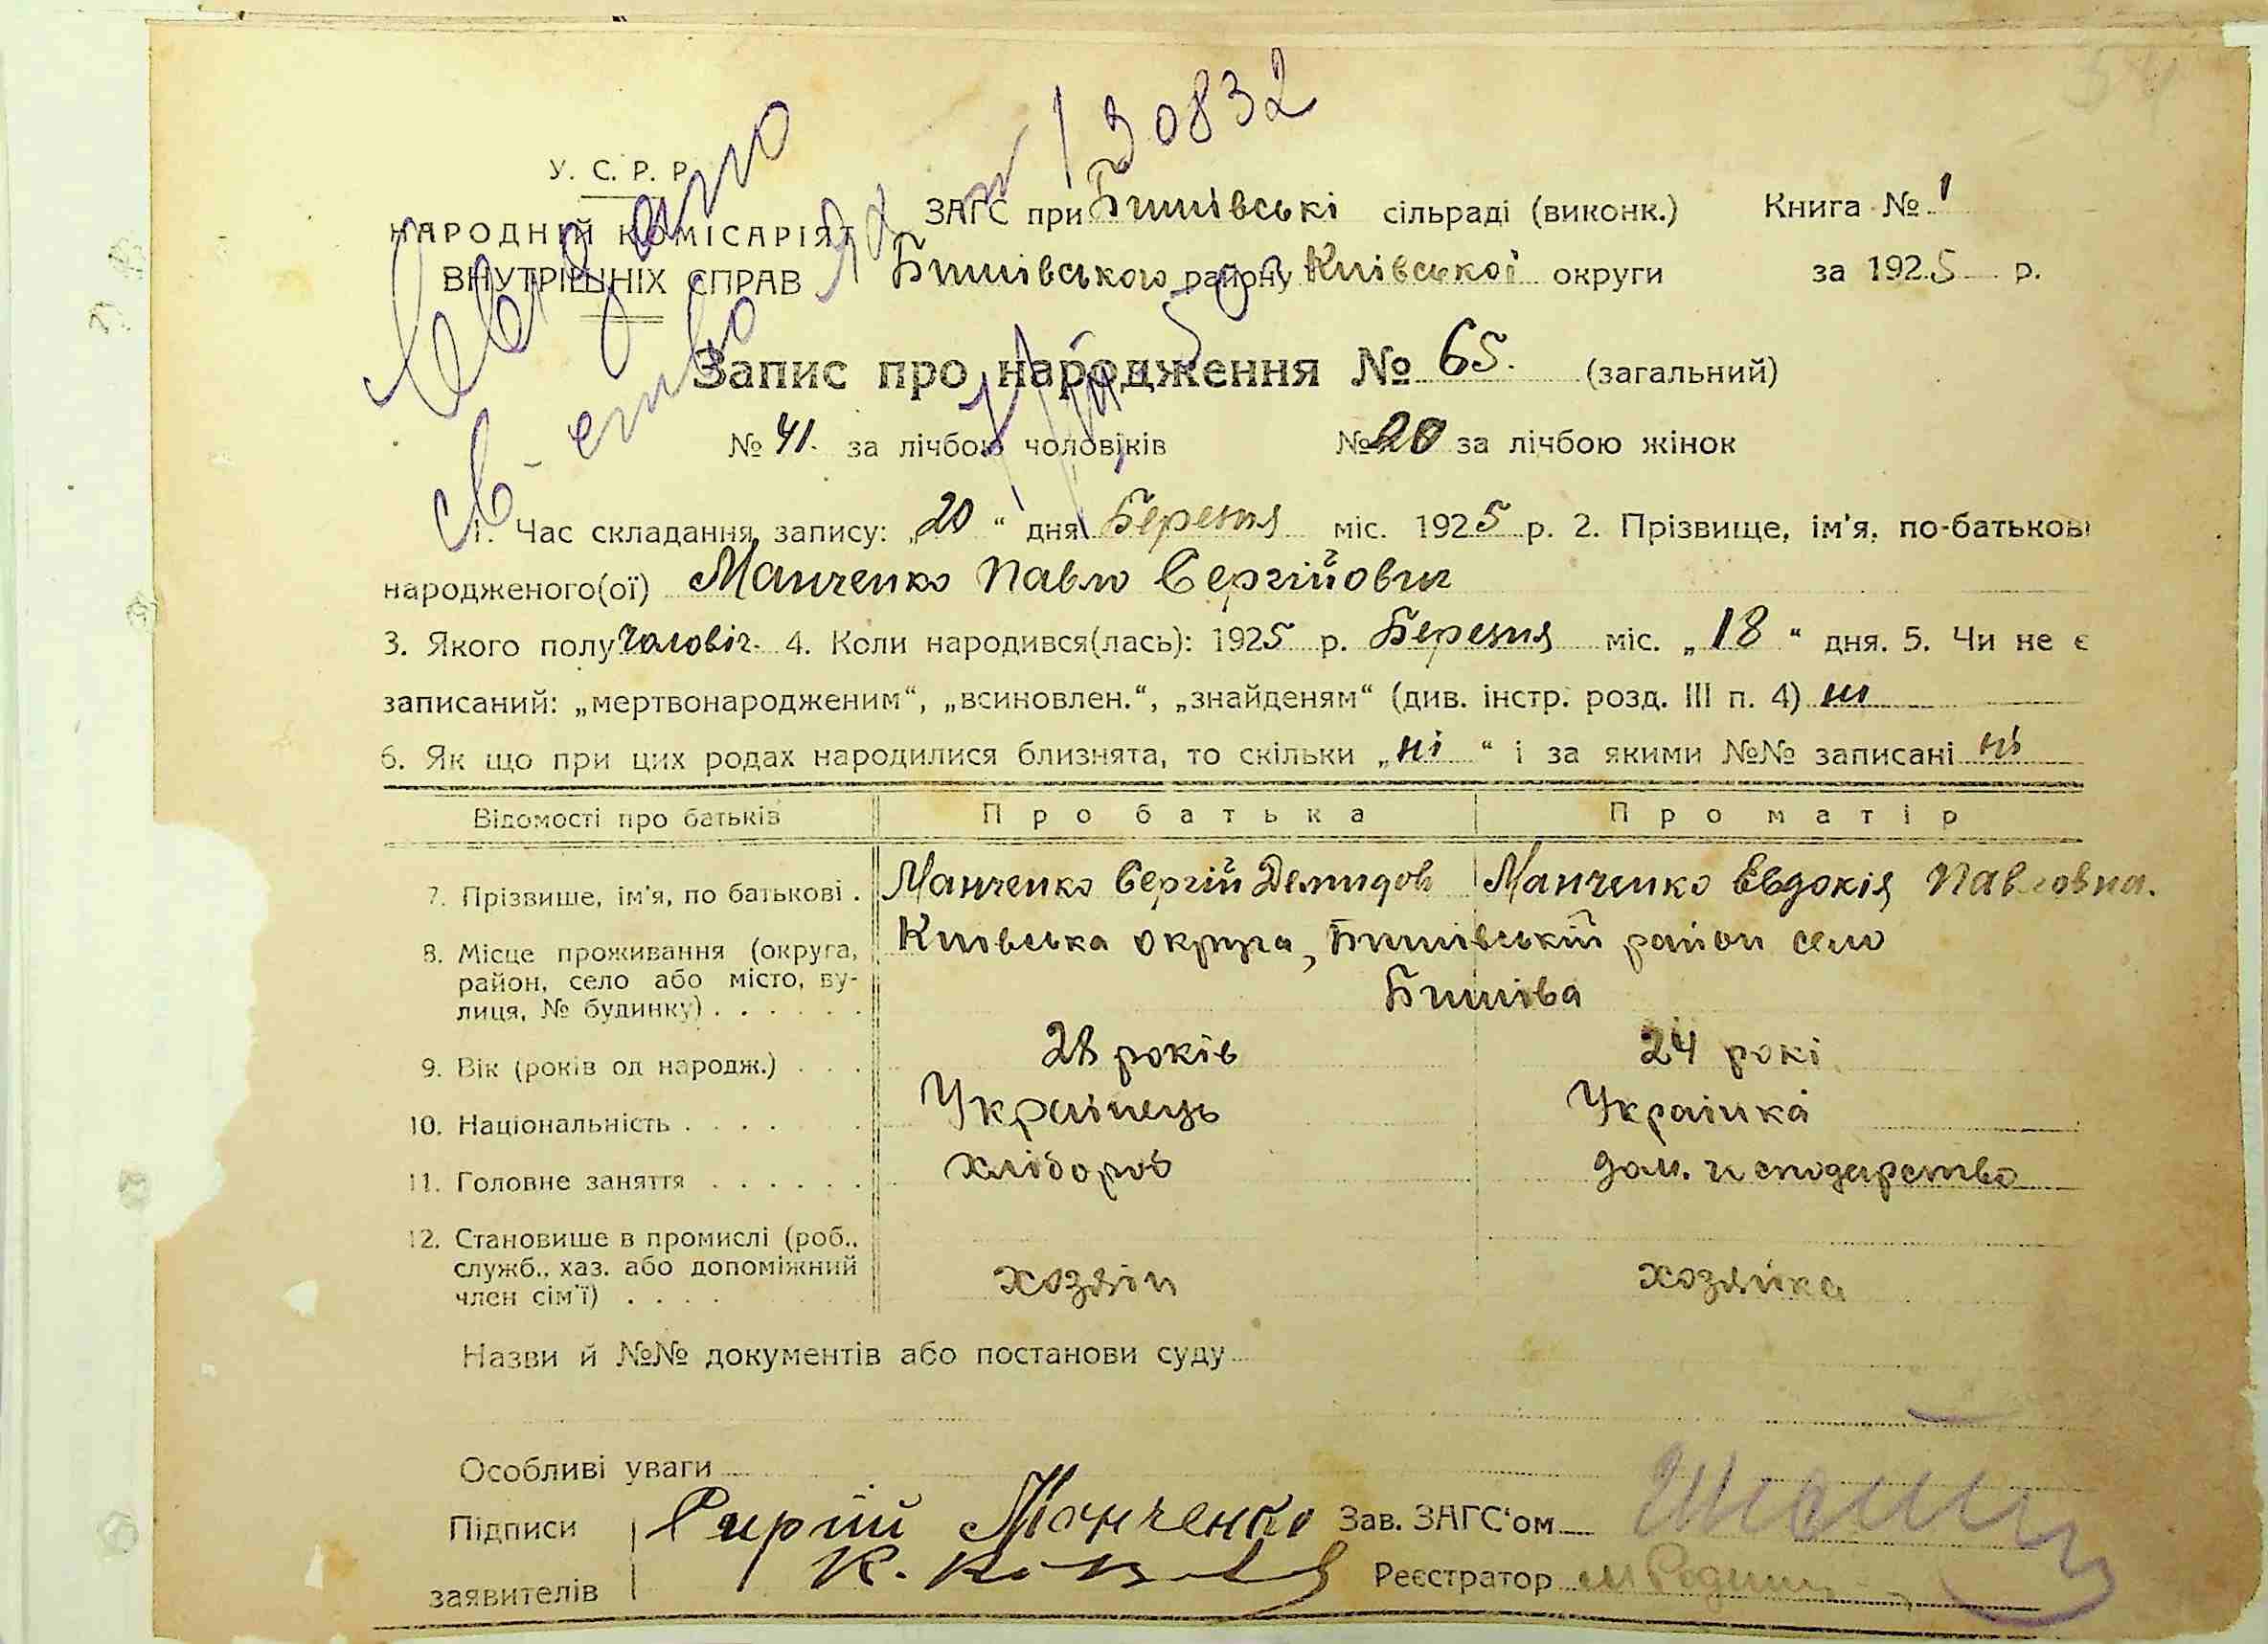 130832
У. С. Р. Р.
НАРОДНИЙ КОМІСАРІЯТ
ВНУТРІШНІХ СПРАВ
ЗАГС при Бишівські сільраді (виконк.) Книга № 1
Бишівського району Київської округи за 1925 р.
Запис про народження № 65. (загальний)
№ 41. за лічбою чоловіків № 20 за лічбою жінок
1. Час складання запису: „20“ дня Березня міс. 1925 р. 2. Прізвище, ім'я, по-батькові
народженого(ої) Манченко Павло Сергійович
3. Якого полу Чоловіч. 4. Коли народився(лась): 1925 р. Березня міс. „18“ дня. 5. Чи не є
записаний: „мертвонародженим“, „всиновлен.“, „знайденям“ (див. інстр. розд. III п. 4) ні
6. Як що при цих родах народилися близнята, то скільки „ні“ і за якими №№ записані ні
Відомості про батьків Про батька Про матір
7. Прізвише, ім'я, по батькові . Манченко Сергій Демидов Манченко Евдокія Павловна.
8. Місце проживання (округа, район, село або місто, вулиця, № будинку) . . . . . . Київська округа, Бишівський район село
Бишіва
9. Вік (років од народж.) . . . 28 років 24 рокі
10. Національність . . . . . Українець Українка
11. Головне заняття . . . . . . хлібороб дом. господарство
12. Становище в промислі (роб., служб., хаз. або допоміжний член сім'ї) . . . . хозяїн хозяйка
Назви й №№ документів або постанови суду
Особливі уваги
Підписи Сиргій Манченко Зав. ЗАГС'ом
заявителів К. Реєстратор